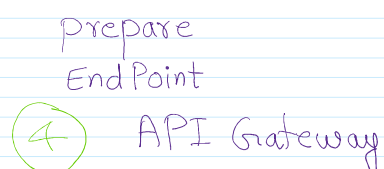 Prepare
EndPoint
4 API Gateway